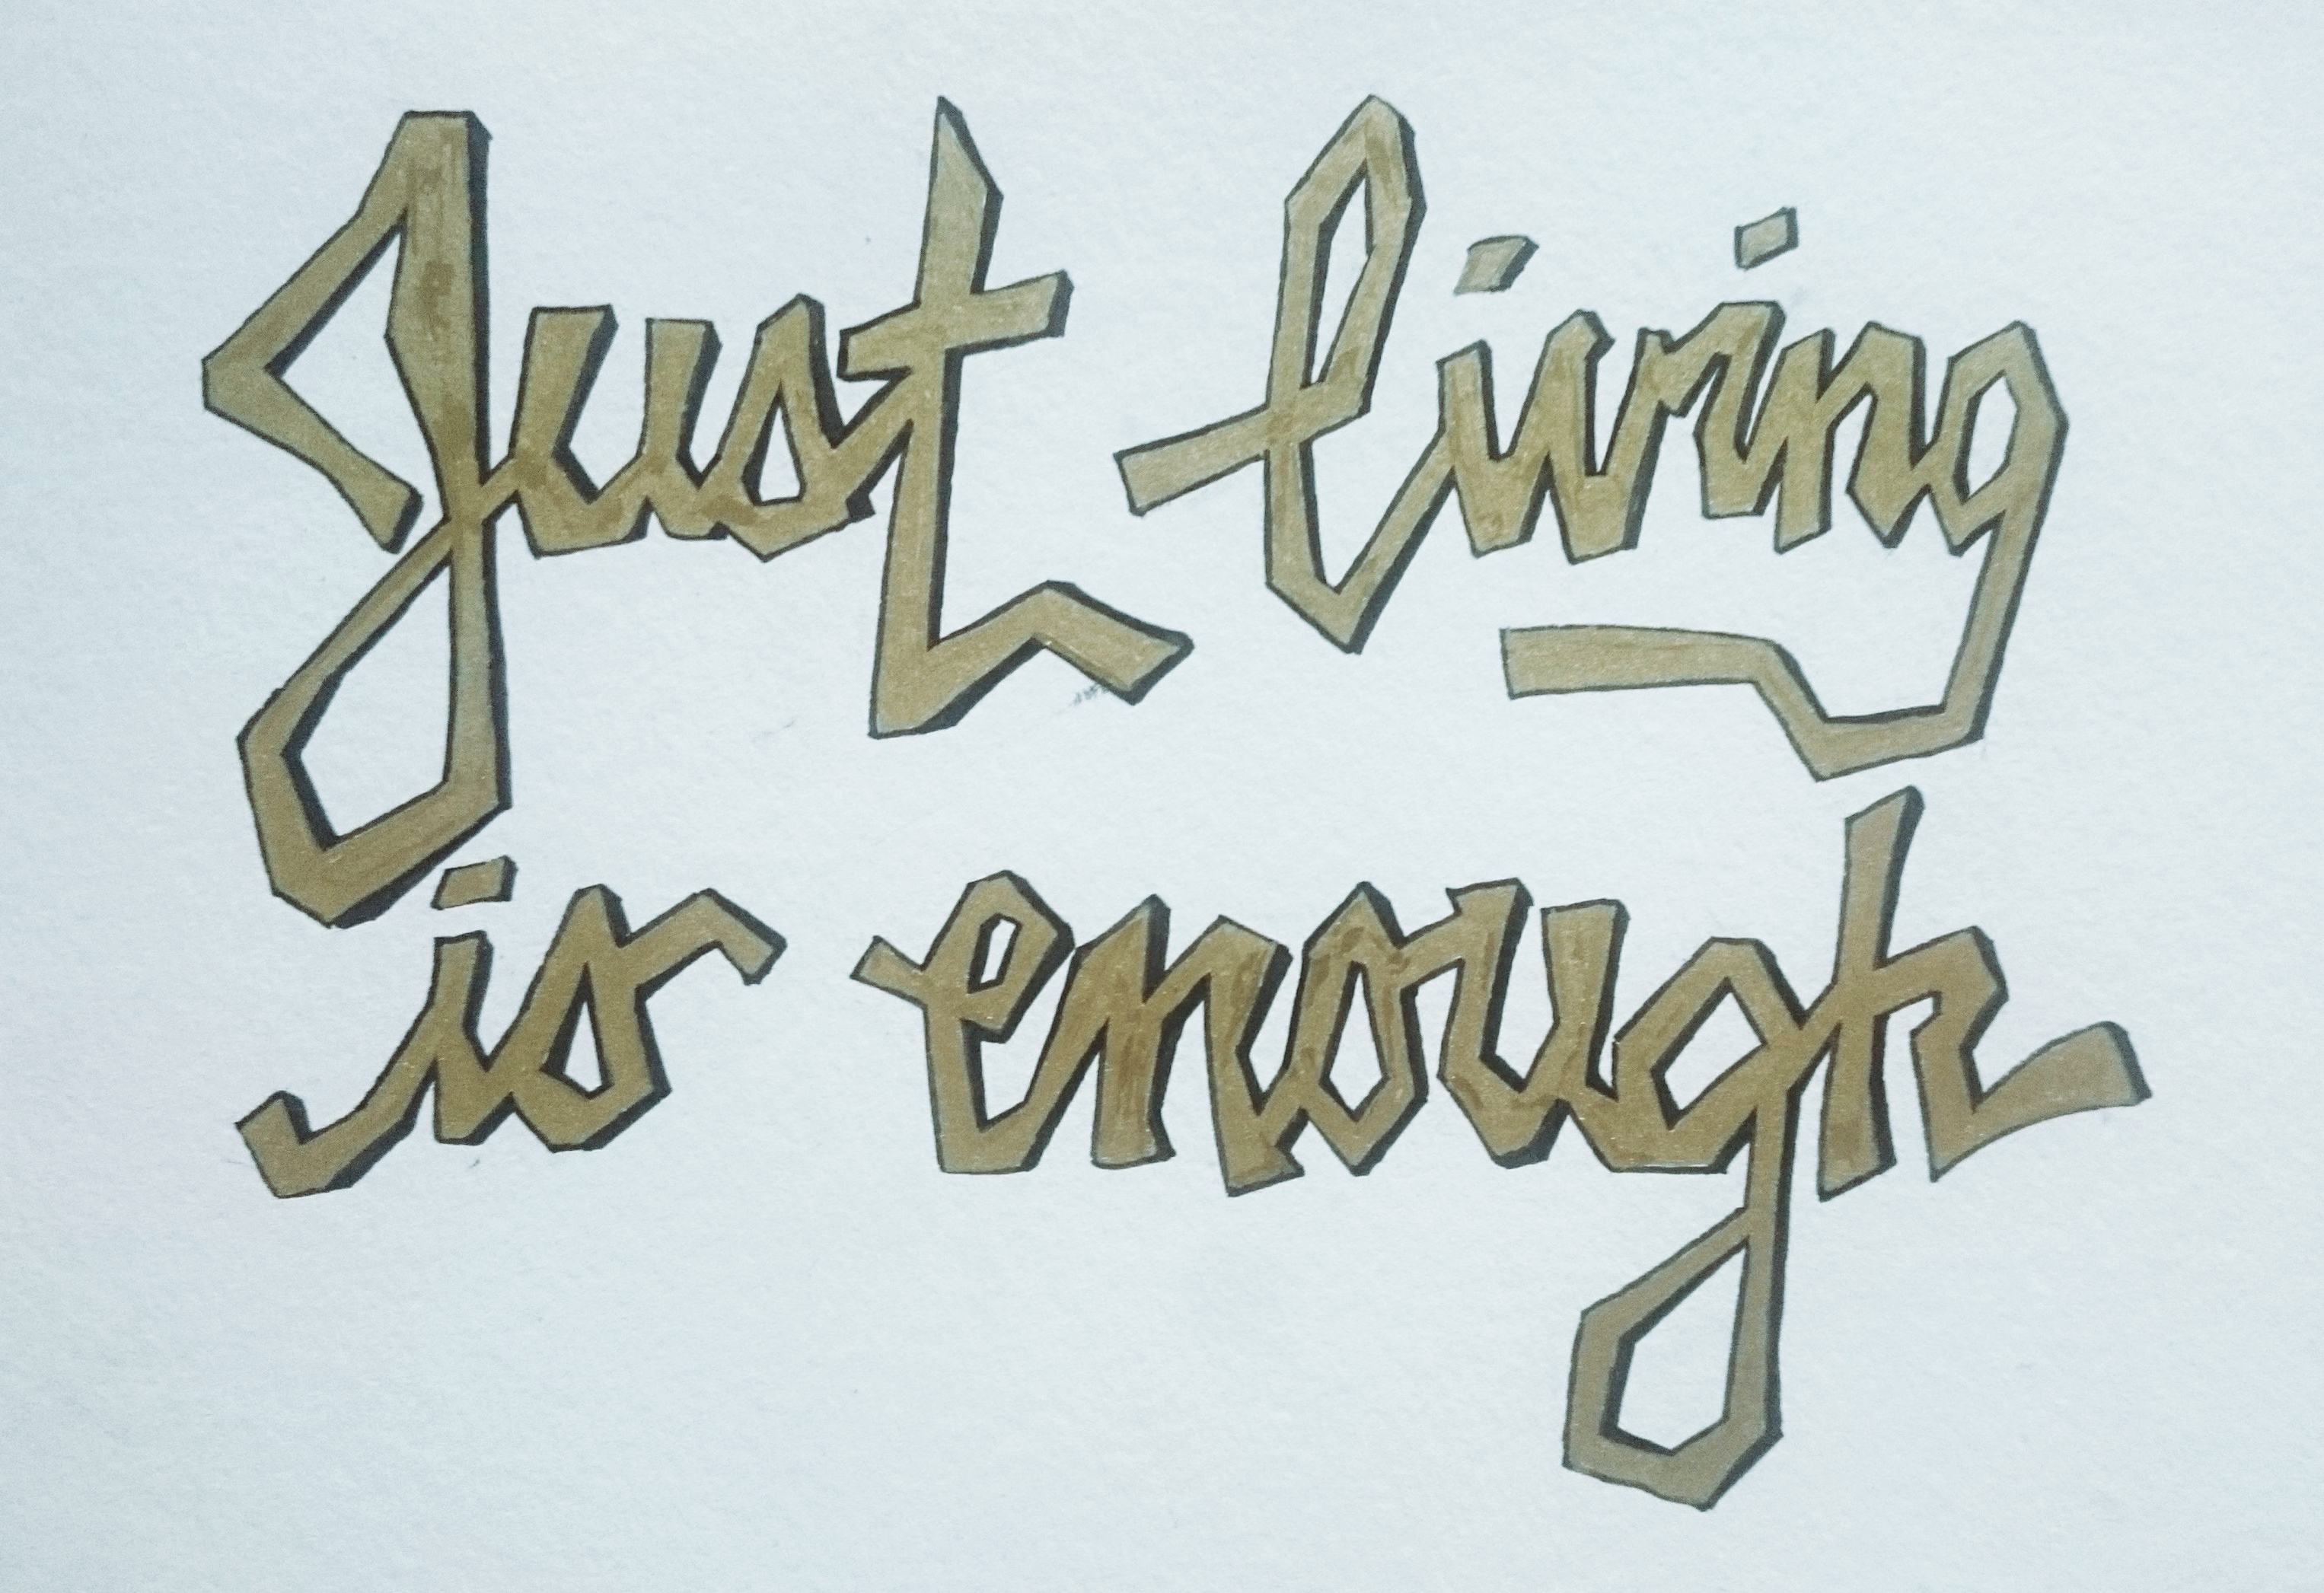 Just living
is enough